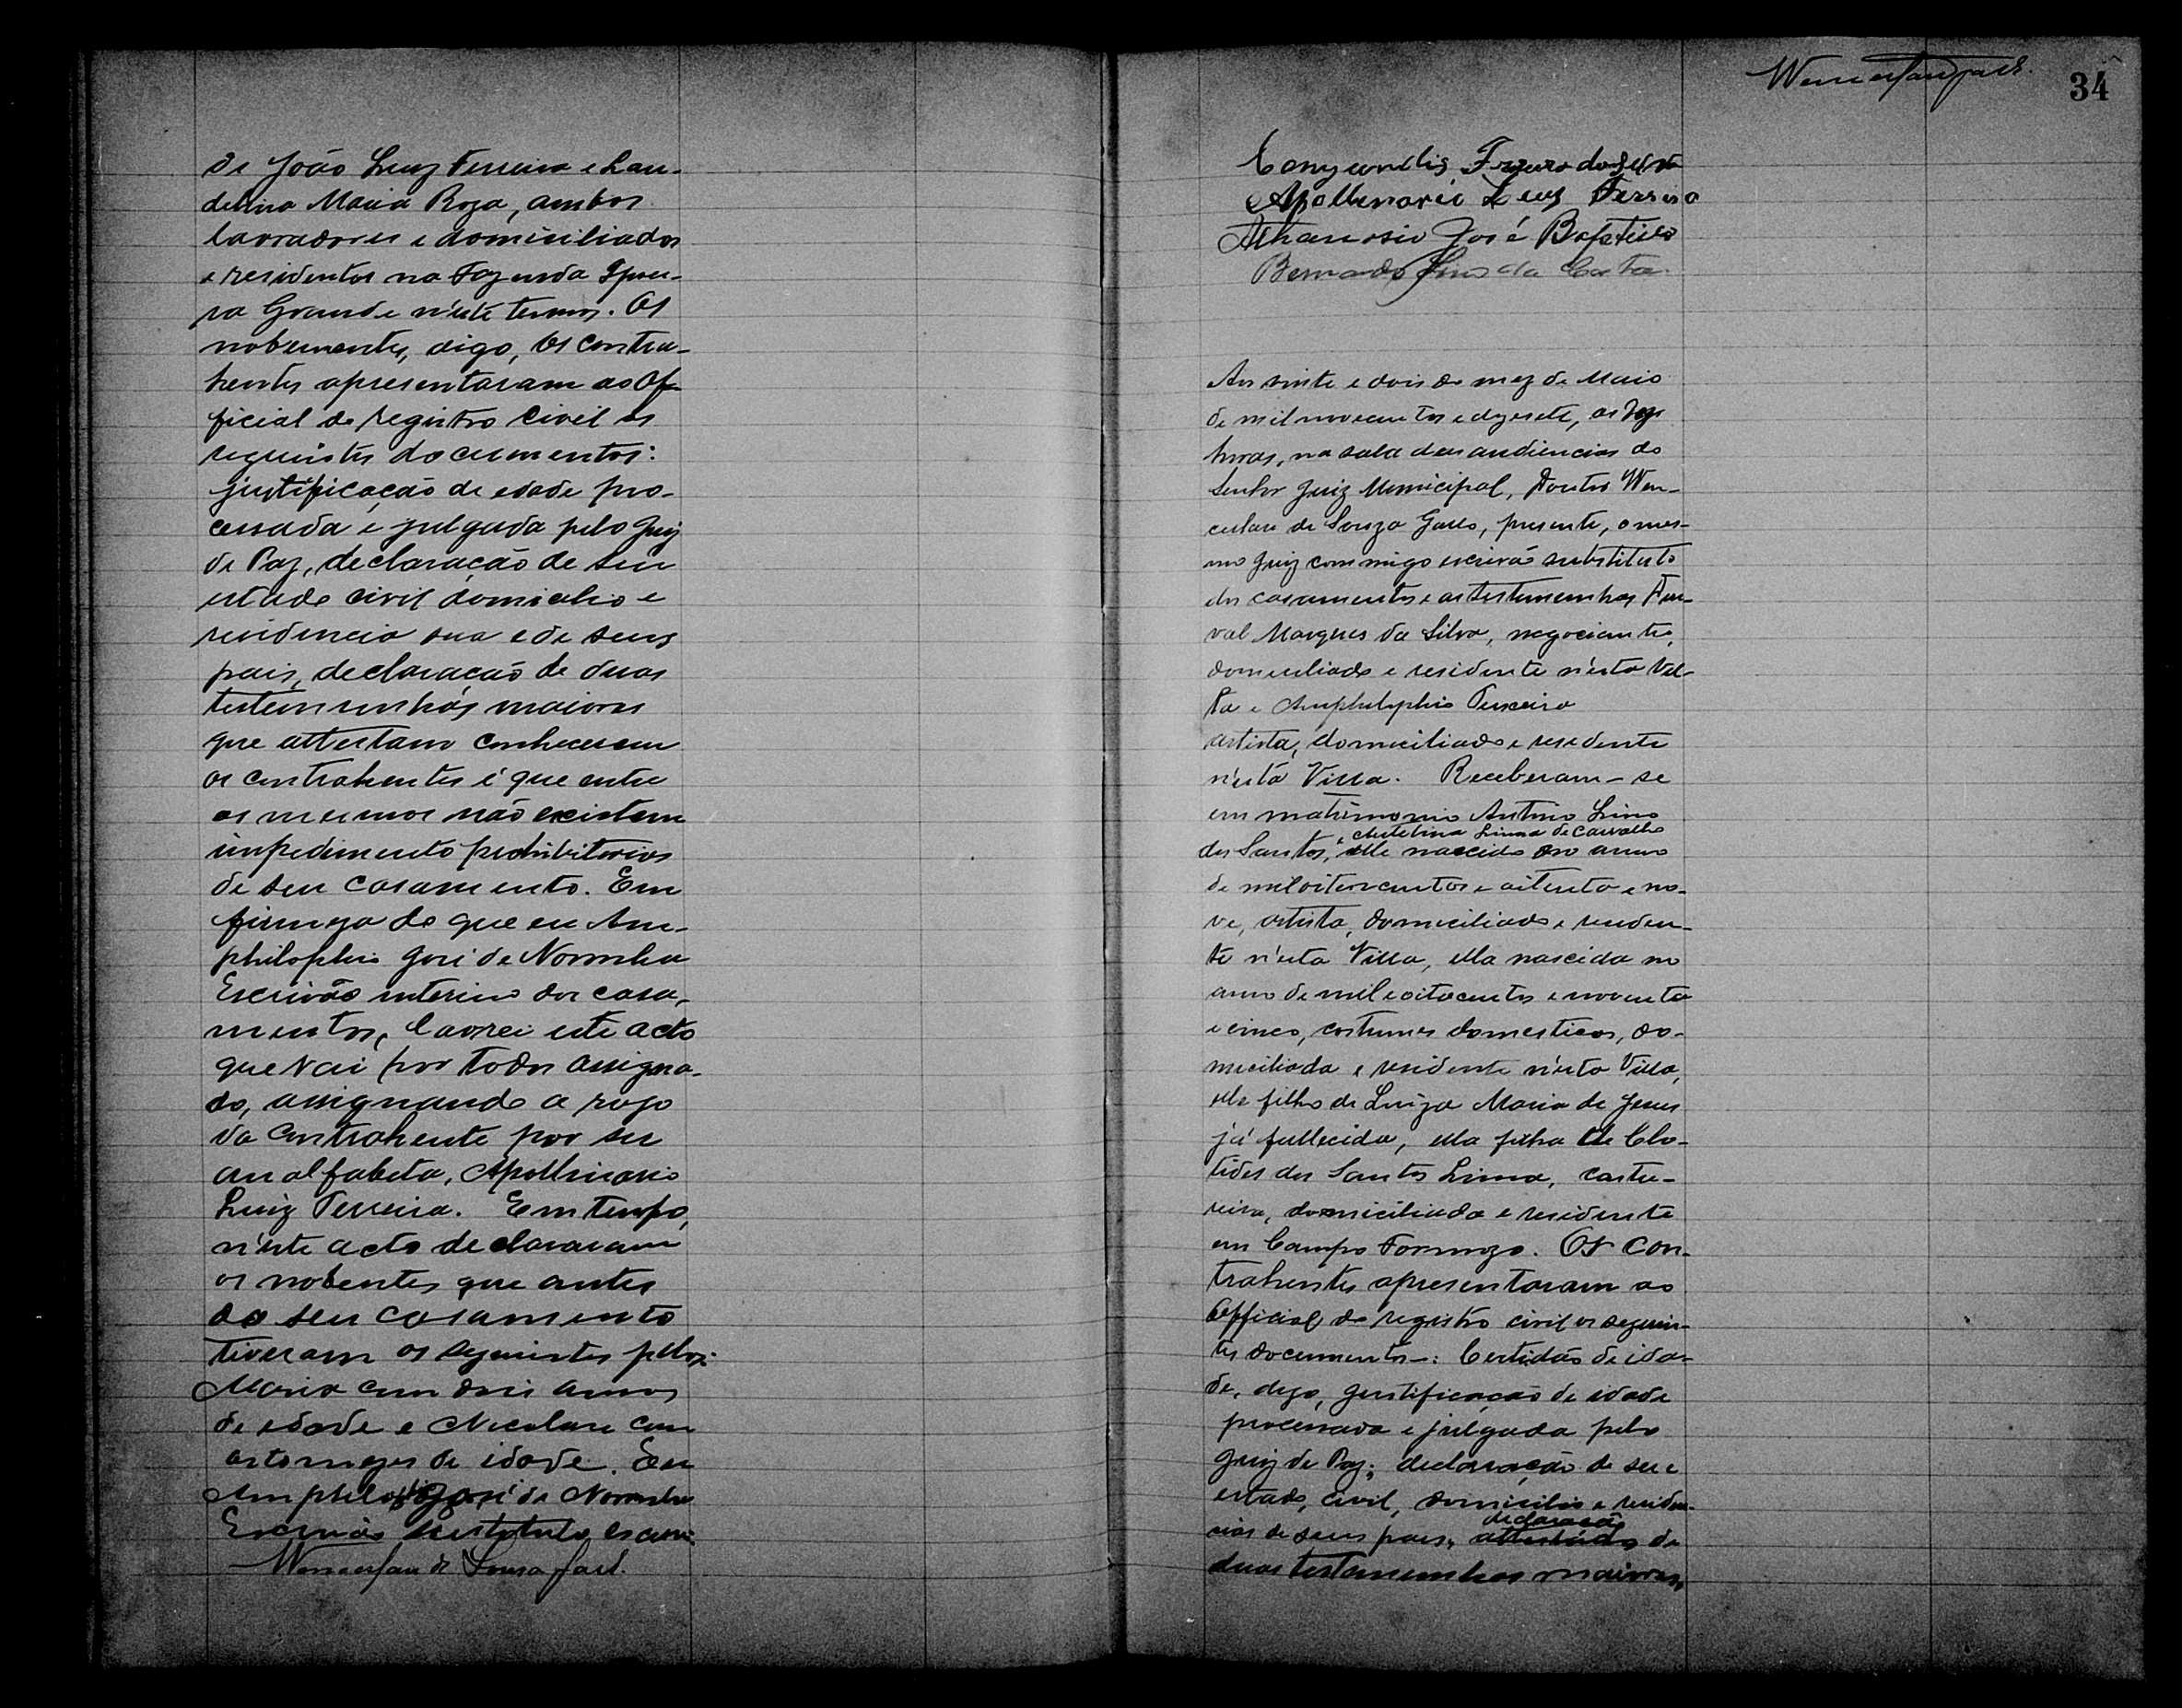 de João Luiz Ferreira e Lau-
delina Maria Roza, ambos
lavradores e domiciliados
e residentes na Fazenda Ipuei-
ra Grande n'este termo. Os
nobrementes, digo, Os contra-
hentes apresentaram ao Of-
ficial do registro civil os
seguintes documentos:
justificação de edade pro-
cessada e julgada pelo Juiz
de Paz, declaração de seu
estado civil domicilio e
residencia sua e de seus
pais, declaração de duas
testemunhas maiores
que attestam conhecerem
os contrahentes e que entre
os mesmos não existem
impedimento prohibitorios
de seu casamento. Em
firmeza do que eu Am-
philophio José de Noronha
Escrivão interino dos casa-
mentos, lavrei este acto
que vai por todos assigna-
do, assignando a rogo
da contrahente por ser
analfabeta, Apollinario
Luiz Ferreira. Em tempo,
n'este acto declararam
os nobentes que antes
do seu casamento
tiveram os seguintes filhos:
Maria com dois annos
de edade e Nicolau com
oito mezes de idade. Eu
Amphilophio José de Noronha
Escrivão substituto escrevi.
Wenceslau de Souza
34
Ferreira da Silva
Apollinario Luiz Ferreira
Athanasio José Baptista
Bernardo Lino da Costa
Aos vinte e dois do mez de Maio
de mil novecentos e dezesete, as dez
horas, na sala das audiencias do
Senhor Juiz Municipal, Doutor Wen-
ceslau de Souza, presente, o mes-
mo Juiz commigo escrivão substituto
dos casamentos e as testemunhas Dur-
val Marques da Silva, negociante,
domiciliado e residente n'esta Vil-
la e Amphilophio Ferreira
artista, domiciliado e residente
n'esta Villa. Receberam-se
em matrimonio Antino Lino
dos Santos, e Lima de Carvalho elle nascido no anno
de mil oitocentos e oitenta e no-
ve, artista, domiciliado e residen-
te n'esta Villa, ella nascida no
anno de mil e oitocentos e noventa
e cinco, costumes domesticos, do-
miciliada e residente n'esta Villa,
elle filho de Luiza Maria de Jesus
já fallecida, ella filha de Clo-
tides dos Santos Lima, costu-
reira, domiciliada e residente
em Campo Formozo. Os con-
trahentes apresentaram ao
Official do registro civil os seguin-
tes documentos: Certidão de ida-
de, digo, justificação de idade
processada e julgada pelo
Juiz de Paz; declaração de seu
estado, civil, domicilio e residen-
cias de seus paes; declaração de
duas testemunhas maiores,